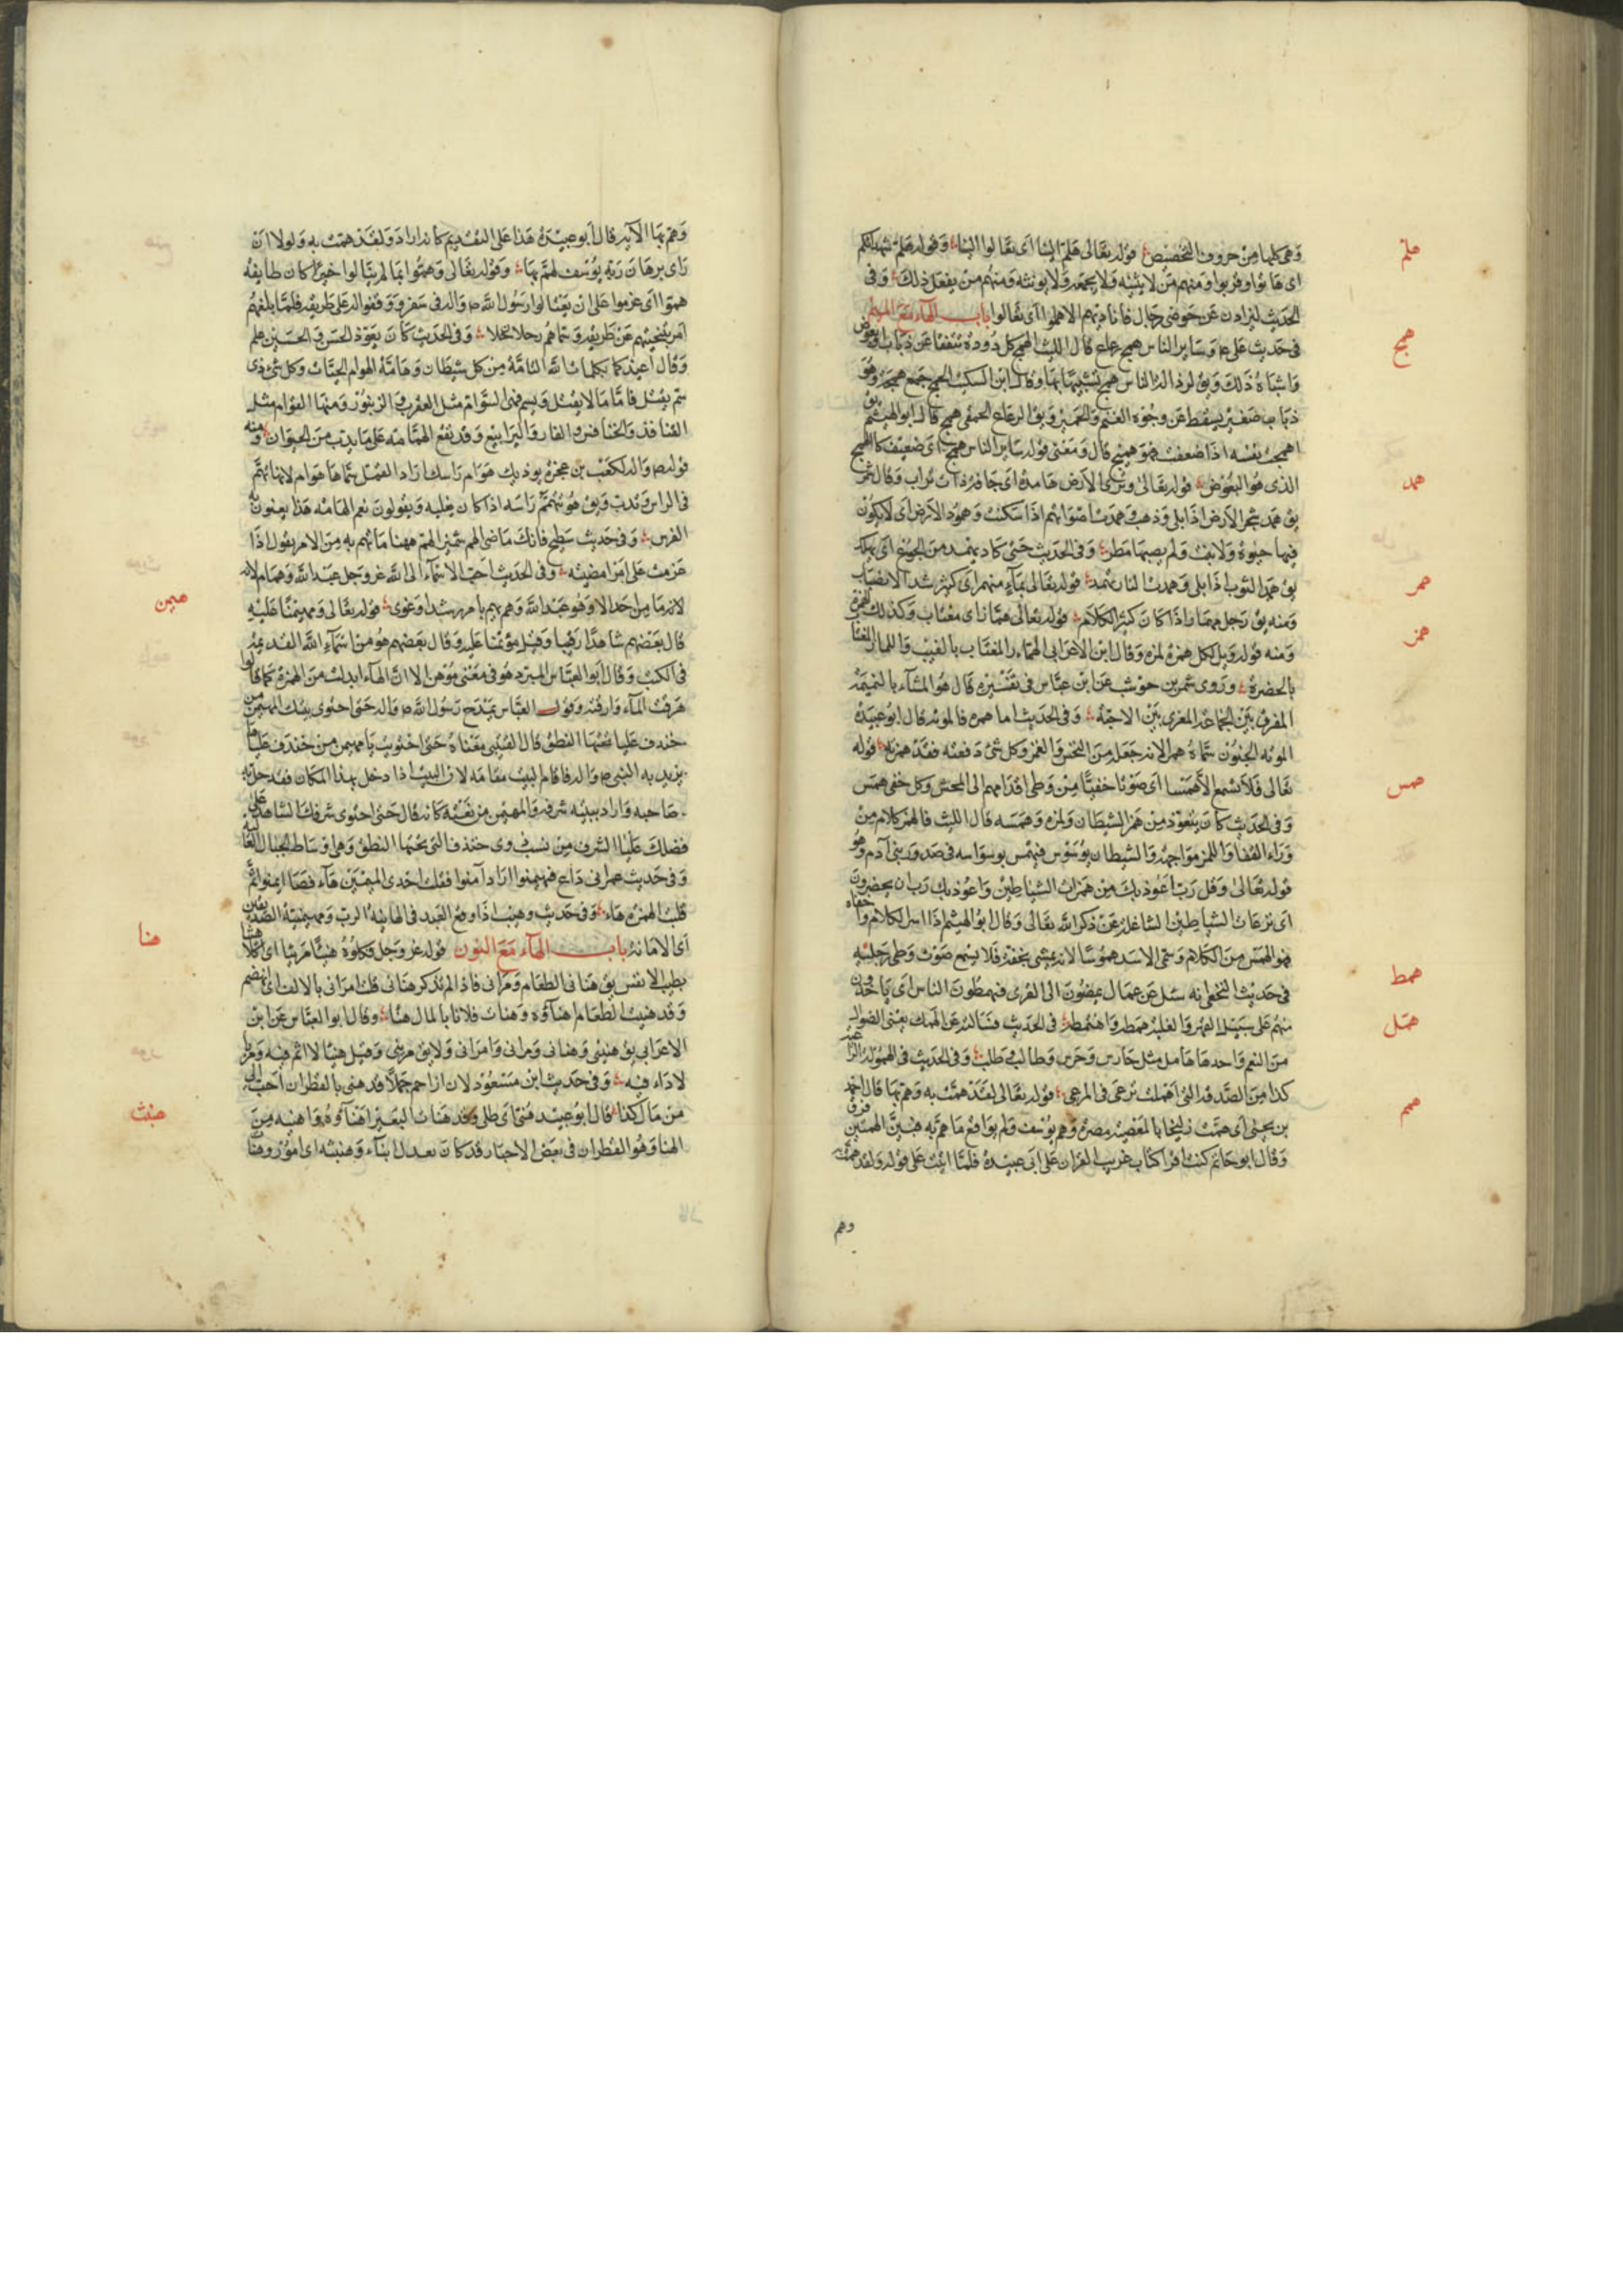 وهي كلها من حروف التخصيص قوله تعالى هلم الينا اى تعالوا الينا وقوله هلم شهداءكم
هلم
اى هاتوا وقربوا ومنهم من لا يثنيه ولا يجمعه ولا يؤنثه ومنهم من يفعل ذلك وفى
الحديث ليذادن عن حوضى رجال فاناديهم الا هلموا اى تعالوا باب الهاء مع الميم
فى حديث على ع وساير الناس همج رعاع قال الليث الهمج كل دودة تنفقا عن ذباب او بعوض
همج
واشباه ذلك ويق لرذالة الناس همج تشبيها بها وقال ابن السكيت الهمج جمع همجة وهو
ذباب صغير يسقط على وجوه الغنم والحمير ويق الرعاع الحمقى همج قال ابو الهيثم يق
اهمجت نفسه اذا ضعفت فهو هميج قال ومعنى قوله ساير الناس همج اى ضعيف كالهمج
الذى هو البعوض قوله تعالى وترى الارض هامدة اى جافة ذات تراب وقال شمر
همد
يق همد شجر الارض اذا بلى وذهب وهمدت اصواتهم اذا سكنت وهمود الارض اى لا يكون
فيها حيوة ولا نبت ولم يصبها مطر وفى الحديث حتى كاد يهمد من الجوع اى يهلك
يق همد الثوب اذا بلى وهمدت النار تهمد قوله تعالى بماء منهمر اى كثير شد الانصباب
همر
ومنه يق رجل مهمار اذا كان كثير الكلام قوله تعالى هماز اى مغتاب وكذلك الهمزة
همز
ومنه قوله ويل لكل همزة لمزة وقال ابن الاعرابى الهماز المغتاب بالغيب واللماز المغتاب
بالحضرة وروى شهر بن حوشب عن ابن عباس فى تفسيره قال هو المشاء بالنميمة
المفرق بين الجماعة المغرى بين الاحبة وفى الحديث اما همزه فالموته قال ابو عبيدة
الموته الجنون سماه همزا لانه جعله من النخس والغمز وكل شئ دفعته فقد همزته قوله
تعالى فلا تسمع الا همسا اى صوتا خفيا من وطى اقدامهم الى المحشر وكل خفى همس
همس
وفى الحديث كان يتعوذ من همز الشيطان ولمزه وهمسه قال الليث فالهمز كلام من
وراء القفا واللمز مواجهة والشيطان يوسوس فيهمس بوسواسه فى صدور بنى آدم وهو
قوله تعالى وقل رب اعوذ بك من همزات الشياطين واعوذ بك رب ان يحضرون
اى نزعات الشياطين الشاغلة عن ذكر الله تعالى وقال ابو الهيثم اذا اسر الكلام واخفاه
فهو الهمس من الكلام وسمى الاسد هموسا لانه يمشى بخفة فلا يسمع صوت وطى رجليه
فى حديث النخعى انه سئل عن عمال ينهضون الى القرى فيهمطون الناس اى ياخذون
همط
منهم على سبيل القهر والغلبة همط واهتمط فى الحديث فسالته عن الهمل يعنى الضوال
همل
من النعم واحدها هامل مثل حارس وحرس وطالب وطلب وفى الحديث فى الهمولة الراعية
كذا من الصدقة التى اهملت ترعى فى المرعى قوله تعالى لقد همت به وهم بها قال احمد
همم
بن يحيى اى همت زليخا بالمعصية مصرة وهم يوسف ولم يواقع ما هم به فبين الهمتين فرق
وقال ابو حاتم كنت اقرأ كتاب غريب القرآن على ابى عبيدة فلما اتيت على قوله ولقد همت به
وهم
وهم بها الآية قال ابو عبيدة هذا على التقديم كانه اراد ولقد همت به ولولا ان
راى برهان ربه يوسف لهم بها وقوله تعالى وهموا بما لم ينالوا كان طايفة
هموا اى عزموا على ان يغتالوا رسول الله ص واله فى سفر ووقفوا له على طريقه فلما بلغهم
امر بتنحيتهم عن طريقه وسماهم رجلا رجلا وفى الحديث كان يعوذ الحسن والحسين علم
وقال اعيذكما بكلمات الله التامة من كل شيطان وهامة الهوام الحيات وكل شئ ذى
سم يقتل فاما ما لا يقتل ويسم فهى السوام مثل العقرب والزنبور ومنها القوام مثل
القنافذ والخنافس والفار واليرابيع وقد تقع الهامة على ما يدب من الحيوان ومنه
قوله ص واله لكعب بن عجرة يوذيك هوام راسك اراد القمل سماها هوام لانها تهم
فى الراس وتدب ويق هو يتهمم راسه اذا كان يفليه ويقولون نعم الهامة هذا يعنون به
الفرس وفى حديث سطيح فانك ماضى الهم شمير الهم ههنا ما تهم به من الامر يقول اذا
عزمت على امر امضيته وفى الحديث احب الاسماء الى الله عز وجل عبد الله وهمام لانه
لانه ما من احد الا وهو عبد الله وهو يهم بامر رشد او غوى قوله تعالى ومهيمنا عليه
هيمن
قال بعضهم شاهدا رقيبا وقيل مؤتمنا عليه وقال بعضهم هو من اسماء الله القديمة
فى الكتب وقال ابو العباس المبرد هو فى معنى مؤمن الا ان الهاء ابدلت من الهمزة كما قالوا
هرقت الماء وارقته وقول العباس يمدح رسول الله ص واله حتى احتوى بيتك المهيمن من
خندف علياء تحتها النطق قال القتيبى معناه حتى احتويت يا مهيمن من خندف علياء
يريد به النبى ص واله فاقام البيت مقامه لان البيت اذا دخل بهذا المكان فقد حل به
صاحبه واراد ببيته شرفه والمهيمن من نعته كانه قال حتى احتوى شرفك الشاهد على
فضلك علياء الشرف من نسب ذوى خندف التى تحتها النطق وهى اوساط الجبال العالية
وفى حديث عمر انى داع فهيمنوا اراد آمنوا فقلب احدى الميمين هاء فصار ايمنوا ثم
قلب الهمزة هاء وفى حديث وهيب اذا وقع العبد فى الهانية الرب ومهيمنية الصديقين
اى الامانة باب الهاء مع النون قوله عز وجل فكلوه هنيئا مريئا اى اكلا هنيئا
هنا
بطيب الانفس يق هنانى الطعام ومرانى فاذا لم تذكر هنانى قلت امرانى بالالف اى انهضم
وقد هنيت الطعام اهنأوه وهنات فلانا بالمال هنأ وقال ابو العباس عن ابن
الاعرابى يق هنيئى وهنانى ومرانى وامرانى ولا يق مريئى وقيل هنيا لا اثم فيه ومريا
لا داء فيه وفى حديث ابن مسعود لان ازاحم جملا قد هنى بالقطران احب الى
من مال كذا قال ابو عبيد هنئ اى طلى وقد هنات البعير اهنأوه واهنيه من
هنبث
الهنا وهو القطران فى بعض الاخبار قد كان بعدك انباء وهنبثه اى امور وهنات